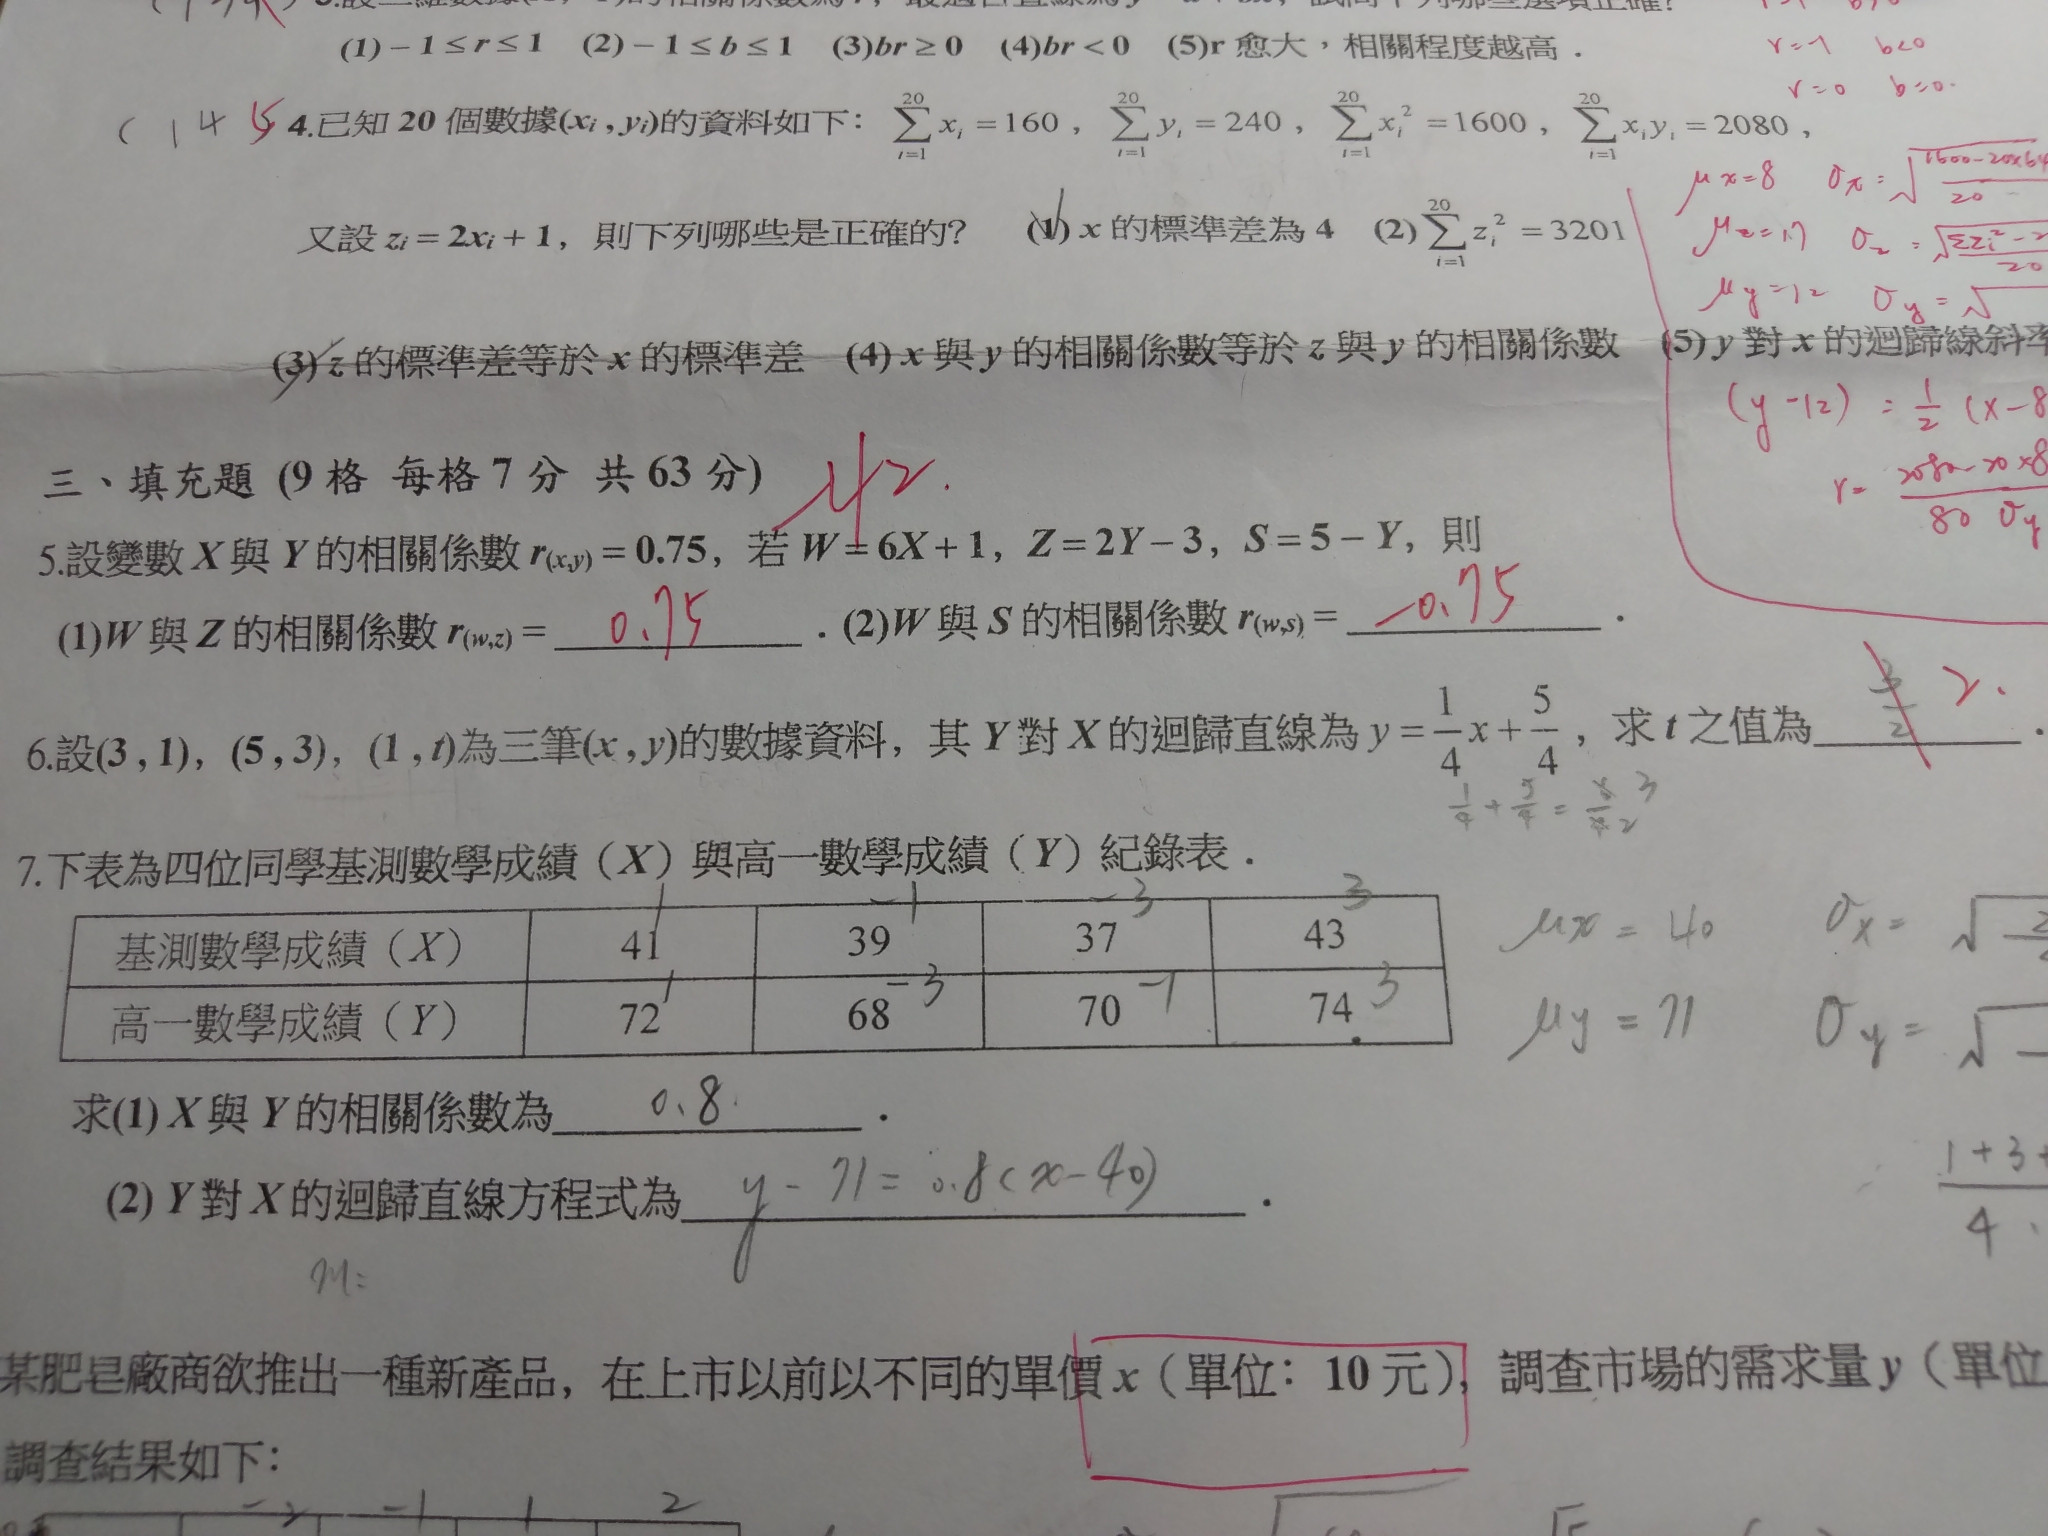 (1) – 1 ≤ r ≤ 1 (2) – 1 ≤ b ≤ 1 (3)br ≥ 0 (4)br < 0 (5)r 愈大，相關程度越高．
r=-1 b<0
r=0 b=0.
( 1 4 5 4.已知 20 個數據(xᵢ , yᵢ)的資料如下： ∑_{i=1}^{20} xᵢ = 160 , ∑_{i=1}^{20} yᵢ = 240 , ∑_{i=1}^{20} xᵢ² = 1600 , ∑_{i=1}^{20} xᵢyᵢ = 2080 ,
μx=8 σx=√(1600-20×64/20
又設 zᵢ = 2xᵢ + 1，則下列哪些是正確的？ (1) x 的標準差為 4 (2) ∑_{i=1}^{20} zᵢ² = 3201
μz=17 σz=√(Σzᵢ²-2/20
μy=12 σy=√
(3) z 的標準差等於 x 的標準差 (4) x 與 y 的相關係數等於 z 與 y 的相關係數 (5) y 對 x 的迴歸線斜率
(y-12) = 1/2 (x-8
r= 2080-20×8/80 σy
三、填充題 (9 格 每格 7 分 共 63 分) 42.
5.設變數 X 與 Y 的相關係數 r(x,y) = 0.75，若 W = 6X + 1，Z = 2Y – 3，S = 5 – Y，則
(1)W 與 Z 的相關係數 r(w,z) = 0.75 ．(2)W 與 S 的相關係數 r(w,s) = -0.75 ．
6.設(3 , 1)，(5 , 3)，(1 , t)為三筆(x , y)的數據資料，其 Y 對 X 的迴歸直線為 y = 1/4 x + 5/4 ，求 t 之值為 3/2 2. ．
1/4 + 5/4 = 6/4 3/2
7.下表為四位同學基測數學成績（X）與高一數學成績（Y）紀錄表．
1 -1 -3 3
基測數學成績（X） 41 39 37 43
μx = 40 σx = √
1 -3 -1 3
高一數學成績（Y） 72 68 70 74
μy = 71 σy = √
求(1) X 與 Y 的相關係數為 0.8 ．
1+3+/4
(2) Y 對 X 的迴歸直線方程式為 y-71=0.8(x-40) ．
m=
某肥皂廠商欲推出一種新產品，在上市以前以不同的單價 x（單位：10 元），調查市場的需求量 y（單位
調查結果如下：
-2 -1 1 2